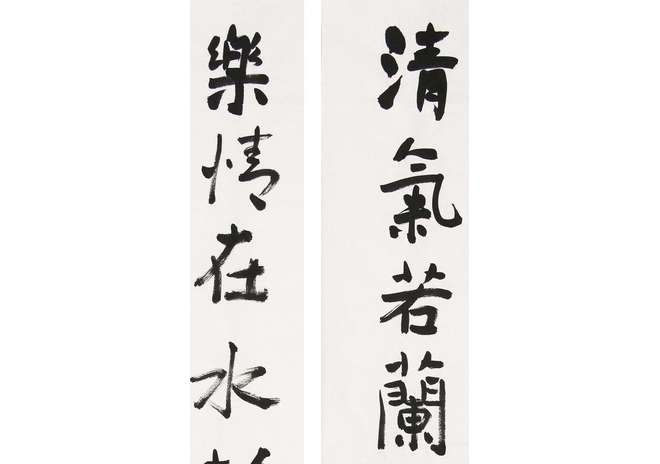 清氣若蘭
樂情在水